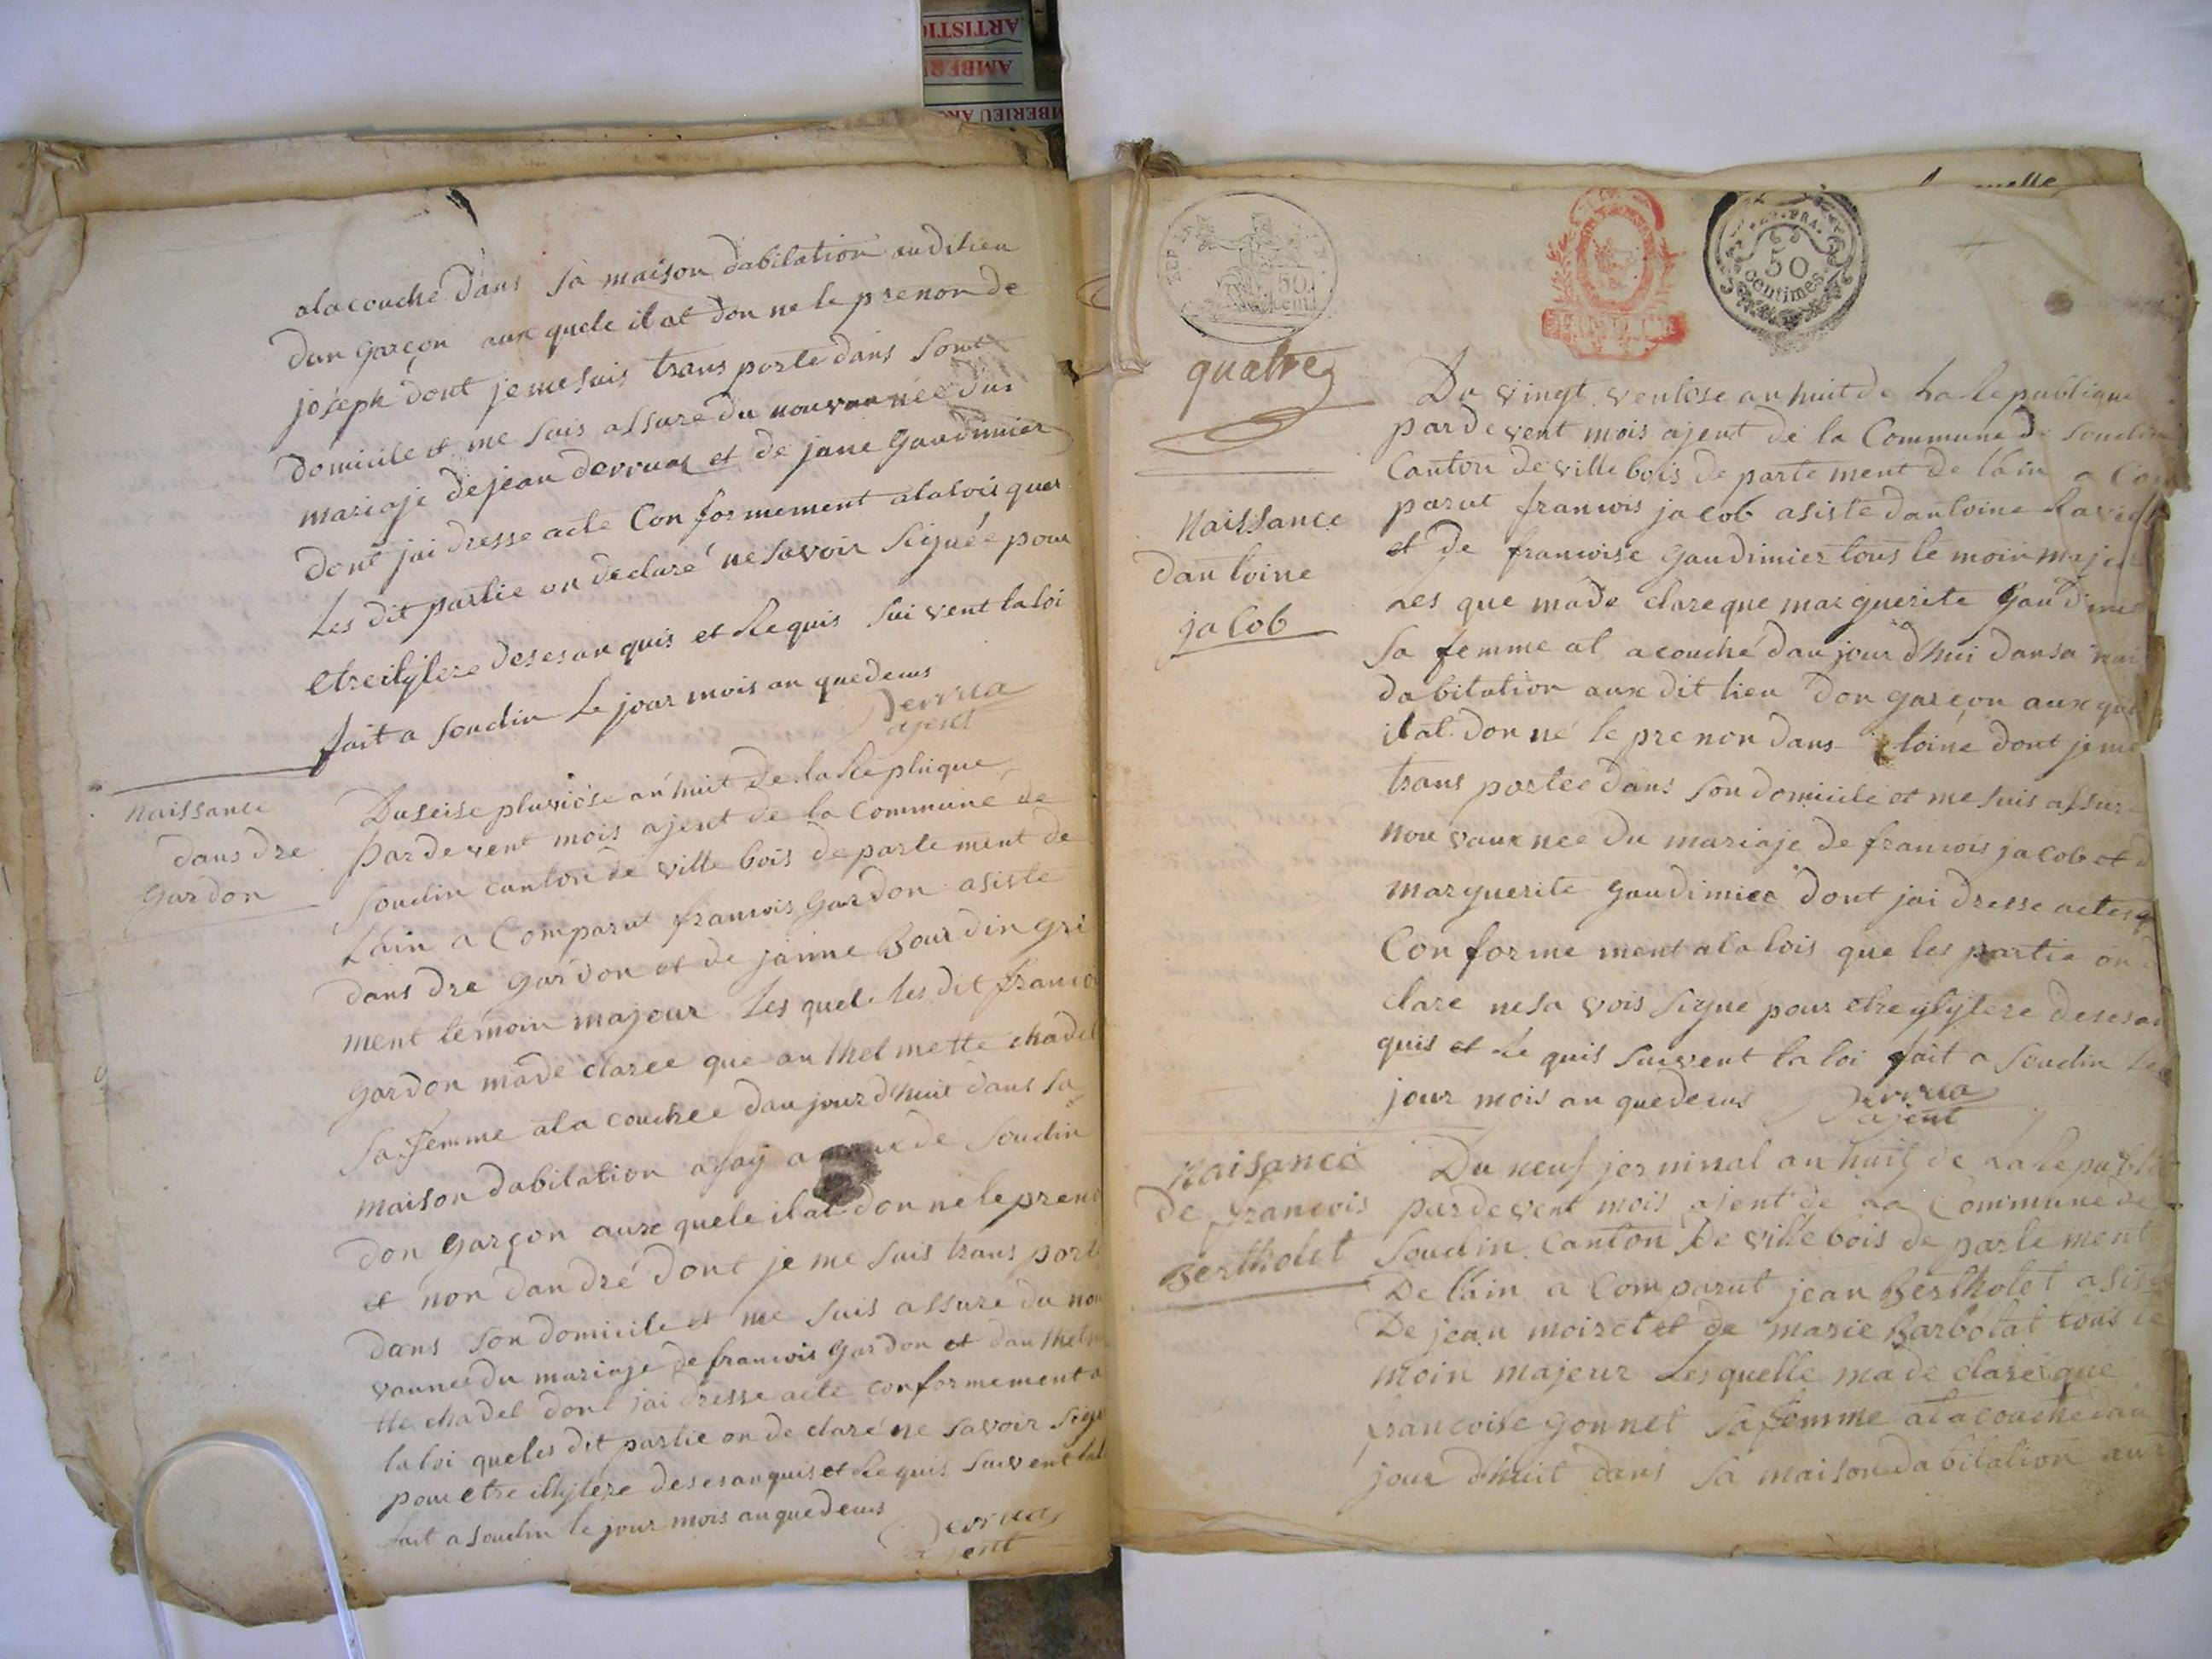 ala couche dans sa maison dabitation audit lieu
dun garçon aux quele il at don ne le prenon de
joseph dont je me suis trans porte dans sont
domicile et me suis assure du nouvau née dun
mariaje de jean derruaz et de jane gaudimier
dont jai dresse acte Con formement ala lois quer
Les dit partie on declaré ne savoir signée pour
etre
fait a soudin Le jour mois an quedeus
Derrua
ajent
Naissance
dans dre
Gardon
Du seise pluviose an huit de la Replique
par de vent mois ajent de la Commune de
Soudin canton de ville bois de parte ment de
Lain a Comparut francois Gardon asiste
dans dre Gardon et de janne Bourdin gri
ment temoin majeur Les quel Les dit franco
Gardon made claree que an thelmette chadel
Sa femme ala couchee daujourdhuit dans sa
maison dabitation de Soudin
don garçon aux quele il at don ne le pren
et non dandré dont je me suis trans porte
dans son domicile et me suis assure du nou
vaunée du mariaje de francois Gardon et dan thelm
tte chadel dont jai dresse acte conformement a
la loi queles dit partie on declaré ne savoir signe
pour etre
fait a soudin le jour mois an quedeus
Derrua
ajent
REP
50
cent
REP. FRA.
50
centimes
quatre
Naissance
dan toine
jacob
Du vingt ventose an huit de La Republique
par de vent mois ajent de la Commune de Soudin
Canton de ville bois de parte ment de lain a Com
parut francois jacob asiste dantoine
et de francoise gaudimier tous te moin majeur
Les que made clare que marguerite gaudime
Sa femme at acouché daujourdhui dansa mai
dabitation aux dit lieu don garçon aux que
il at don né le pre non dans toine dont jeme
trans portee dans son domicile et me suis assur
nou vaux nee du mariaje de francois jacob et d
marguerite gaudimier dont jai dresse acte
Con forme ment ala lois que les partie on d
clare ne sa vois signe pour etre
quis et Re quis suivent la loi fait a soudin Le
jour mois an quedeus
Derrua
ajent
Naisance
de francois
Bertholet
Du neuf jerminal an huit de La Republi
par de vent mois ajent de La Commune de
Soudin Canton De ville bois de parte ment
De lain a Comparut jean Bertholet asis
De jean moiret et de marie Barbolat tous te
moin majeur Lesquelle made claré que
francoise gonnet sa femme ala couche dau
jour dhuit dans sa maison dabitation aux